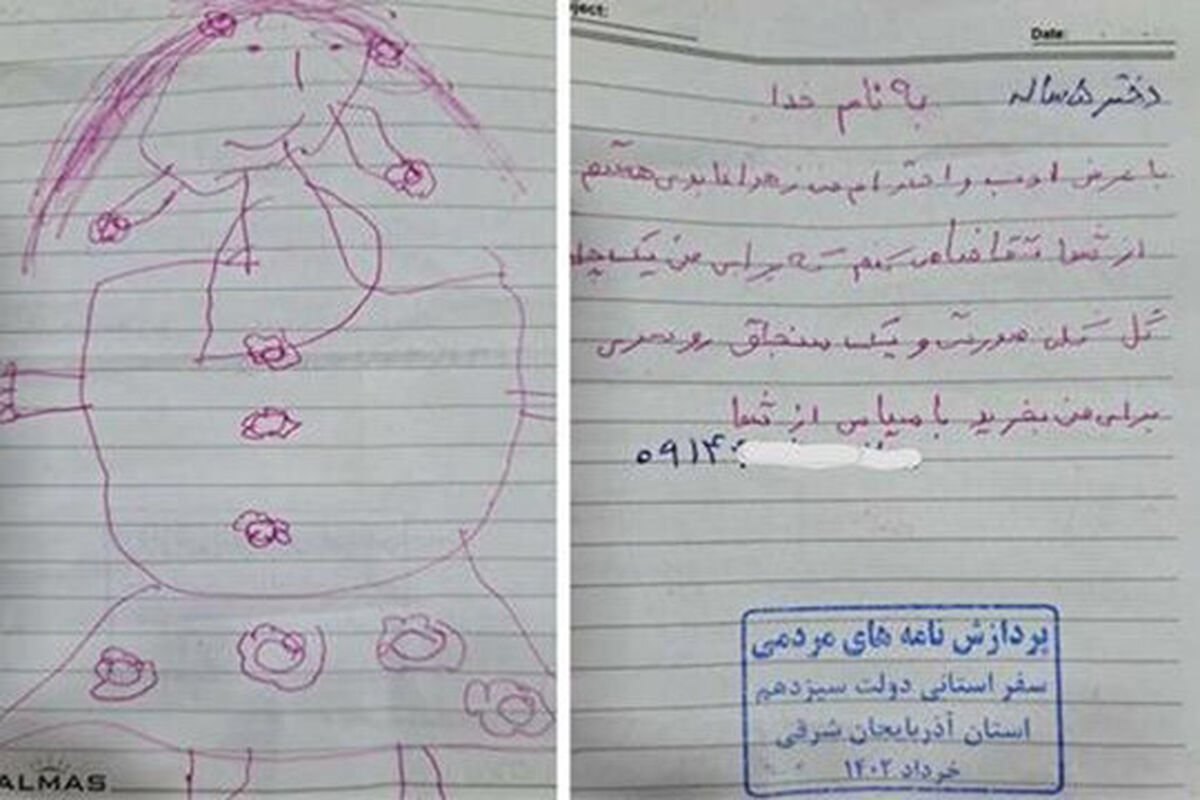 ALMAS
ject:
Date:
دختر ۵ ساله
به نام خدا
با عرض ادب و احترام من زهرا عابدی هستم
از شما تقاضا می کنم که برای من یک
گل گلی صورتی و یک سنجاق روسری
برای من بخرید با سپاس از شما
۰۹۱۴
پردازش نامه های مردمی
سفر استانی دولت سیزدهم
استان آذربایجان شرقی
خرداد ۱۴۰۲